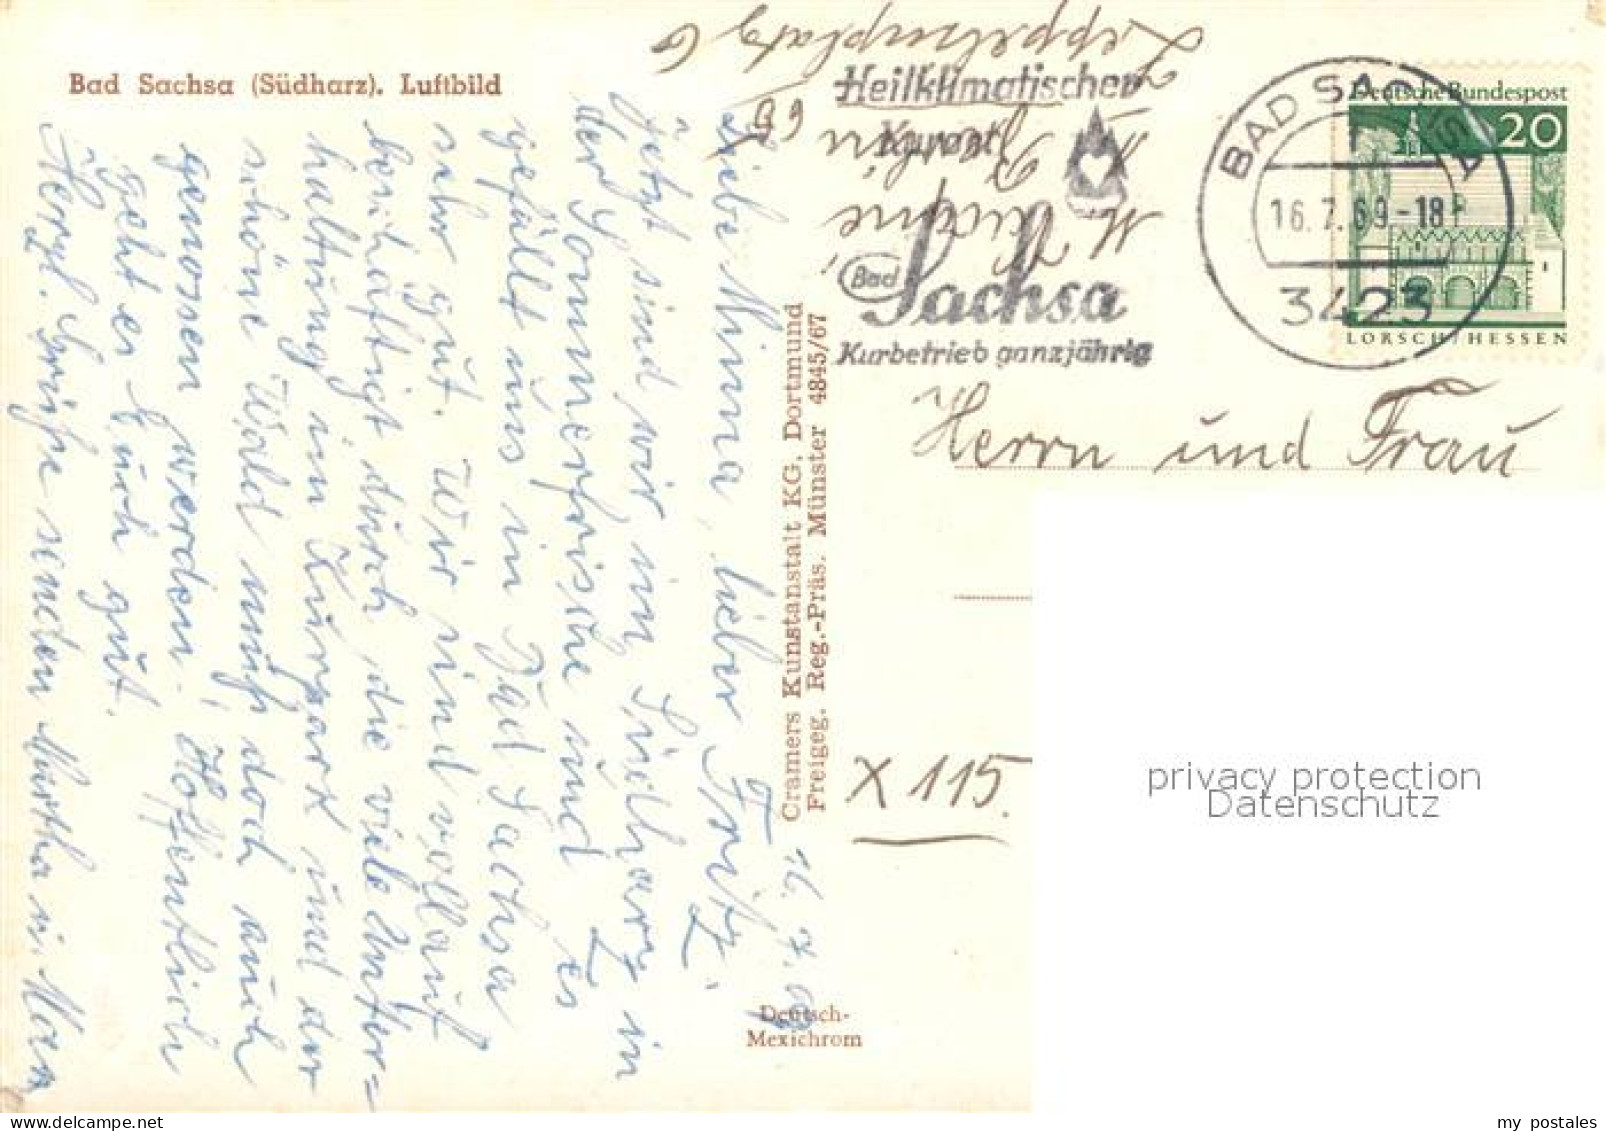 Bad Sachsa (Südharz). Luftbild
16. 7. 69
Liebe Minna, lieber Fritz.
Jetzt sind wir im Südharz in
der Sommerfrische und es
gefällt uns in Bad Sachsa
sehr gut. Wir sind vollauf
beschäftigt durch die viele Unter=
haltung im Kurpark und der
schöne Wald muß doch auch
genossen werden. Hoffentlich
geht es Euch gut.
Herzl. Grüße senden Martha u. Max
Cramers Kunstanstalt KG. Dortmund
Freigeg. Reg.-Präs. Münster 4845/67
Deutsch-
Mexichrom
Heilklimatischer
Kurort
Bad Sachsa
Kurbetrieb ganzjährig
BAD SACHSA
16.7.69-18
3423
Deutsche Bundespost
20
LORSCH/HESSEN
Herrn und Frau
X 115.
Berlin
Zeppelinplatz 6
privacy protection
Datenschutz
my postales